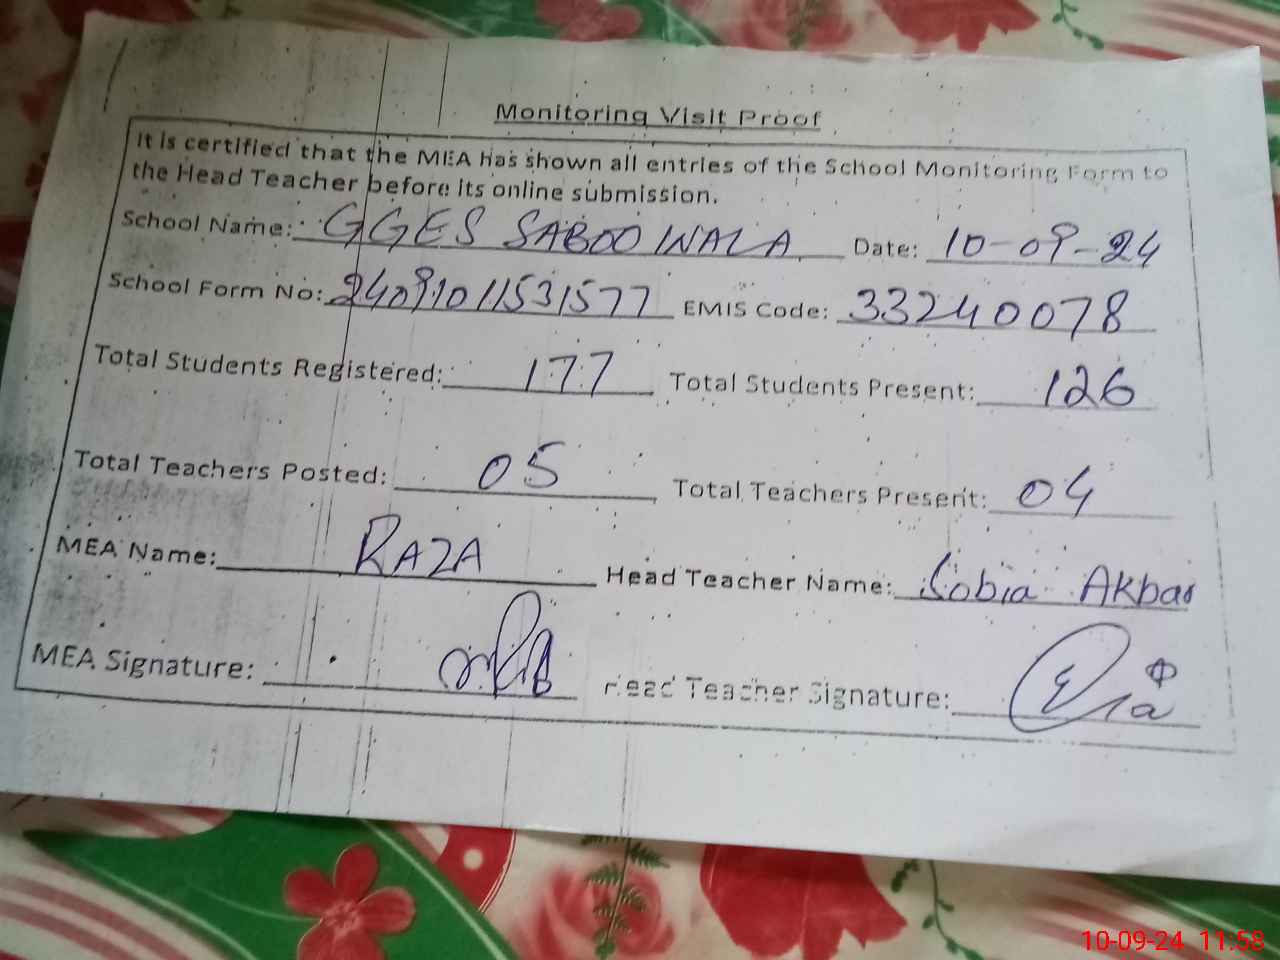 Monitoring Visit Proof
It is certified that the MEA has shown all entries of the School Monitoring Form to
the Head Teacher before its online submission.
School Name: GGES SABOOWALA Date: 10-09-24
School Form No: 24091011531577 EMIS Code: 33240078
Total Students Registered: 177 Total Students Present: 126
Total Teachers Posted: 05 Total Teachers Present: 04
MEA Name: RAZA Head Teacher Name: Sobia Akbar
MEA Signature: Head Teacher Signature:
10-09-24 11:58